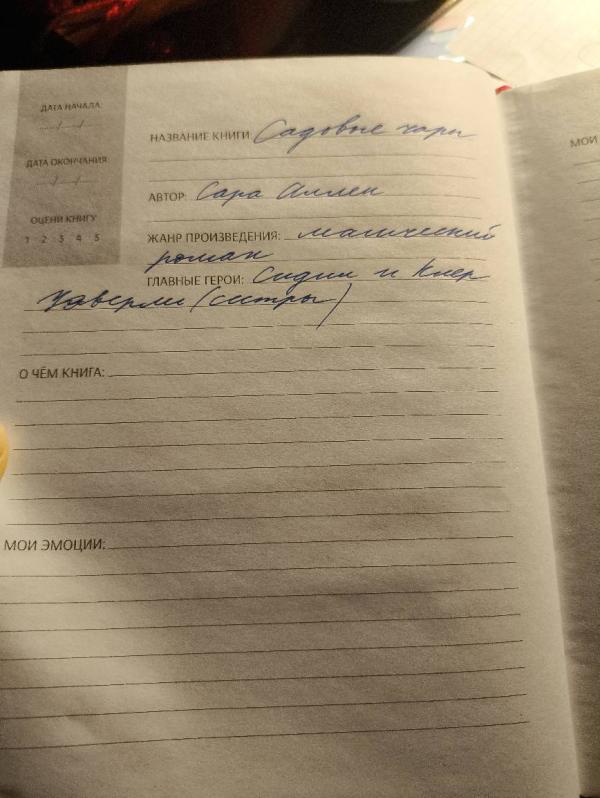 ДАТА НАЧАЛА
__/__/__
НАЗВАНИЕ КНИГИ: Садовые чары
ДАТА ОКОНЧАНИЯ
__/__/__
АВТОР: Сара Аллен
ОЦЕНИ КНИГУ
1 2 3 4 5
ЖАНР ПРОИЗВЕДЕНИЯ: магический
роман
ГЛАВНЫЕ ГЕРОИ: Сидни и Клер
Уэверли (сестры)
О ЧЁМ КНИГА:
МОИ ЭМОЦИИ:
МОИ